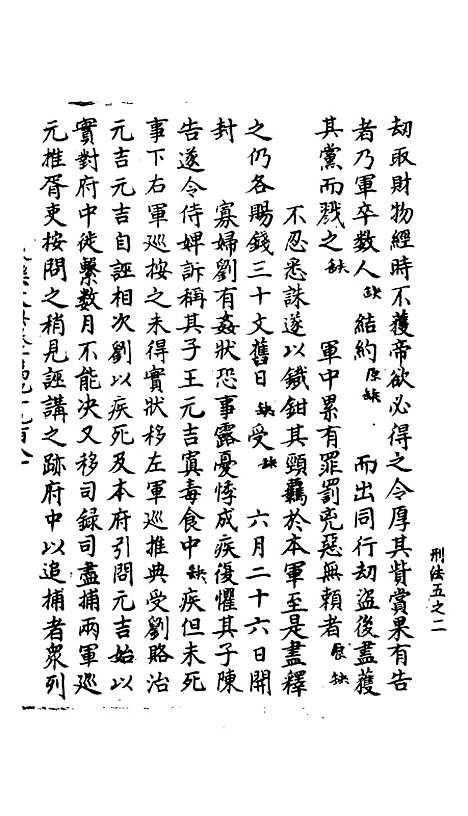 刑法五之二
刼取財物經時不獲帝欲必得之令厚其貲賞果有告
者乃軍卒數人缺結約原缺而出同行刼盜後盡獲
其黨而戮之缺軍中累有罪罰兇惡無賴者原缺
不忍悉誅遂以鐵鉗其頸羈於本軍至是盡釋
之仍各賜錢三十文舊日缺受缺六月二十六日開
封寡婦劉有姦狀恐事露憂悸成疾復懼其子陳
告遂令侍婢訴稱其子王元吉寘毒食中缺疾但未死
事下右軍巡按之未得實狀移左軍巡推典受劉賂治
元吉元吉自誣相次劉以疾死及本府引問元吉始以
實對府中徙繫數月不能决又移司録司盡捕兩軍巡
元推胥吏按問之稍見誣講之跡府中以追捕者衆列